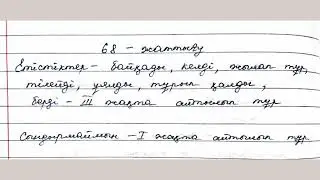 68 – жаттығу
Етістіктер – байқады, келді, жылап тұр,
тілейді, ұялды, тұрып қалды,
берді – III жақта айтылып тұр
Сындырмаймын – I жақта айтылып тұр